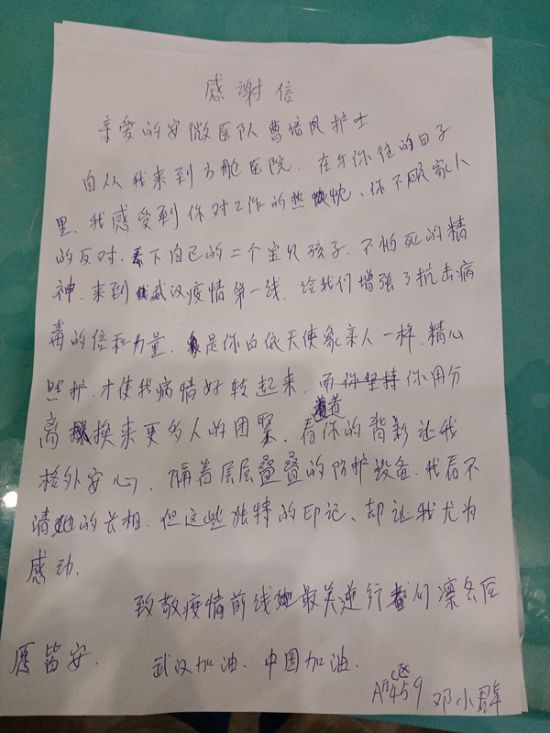 感谢信
亲爱的安微医队曹培凤护士
自从我来到方舱医院．在与你住的日子
里．我感受到你对工作的热忱、你不顾家人
的反对．丢下自己的二个宝贝孩子．不怕死的精
神．来到武汉疫情第一线．给我们增强了抗击病
毒的信和力量．是你白依天使象亲人一样．精心
照护．才使我病情好转起来．而你坚持你用分
离换来更多人的团聚．看着你的背影让我
格外安心．隔着层层叠叠的防护设备．我看不
清她的长相．但这些独特的印记、却让我尤为
感动．
致敬疫情前线最美逆行者们凛冬
愿皆安．武汉加油．中国加油．
A区459 邓小群